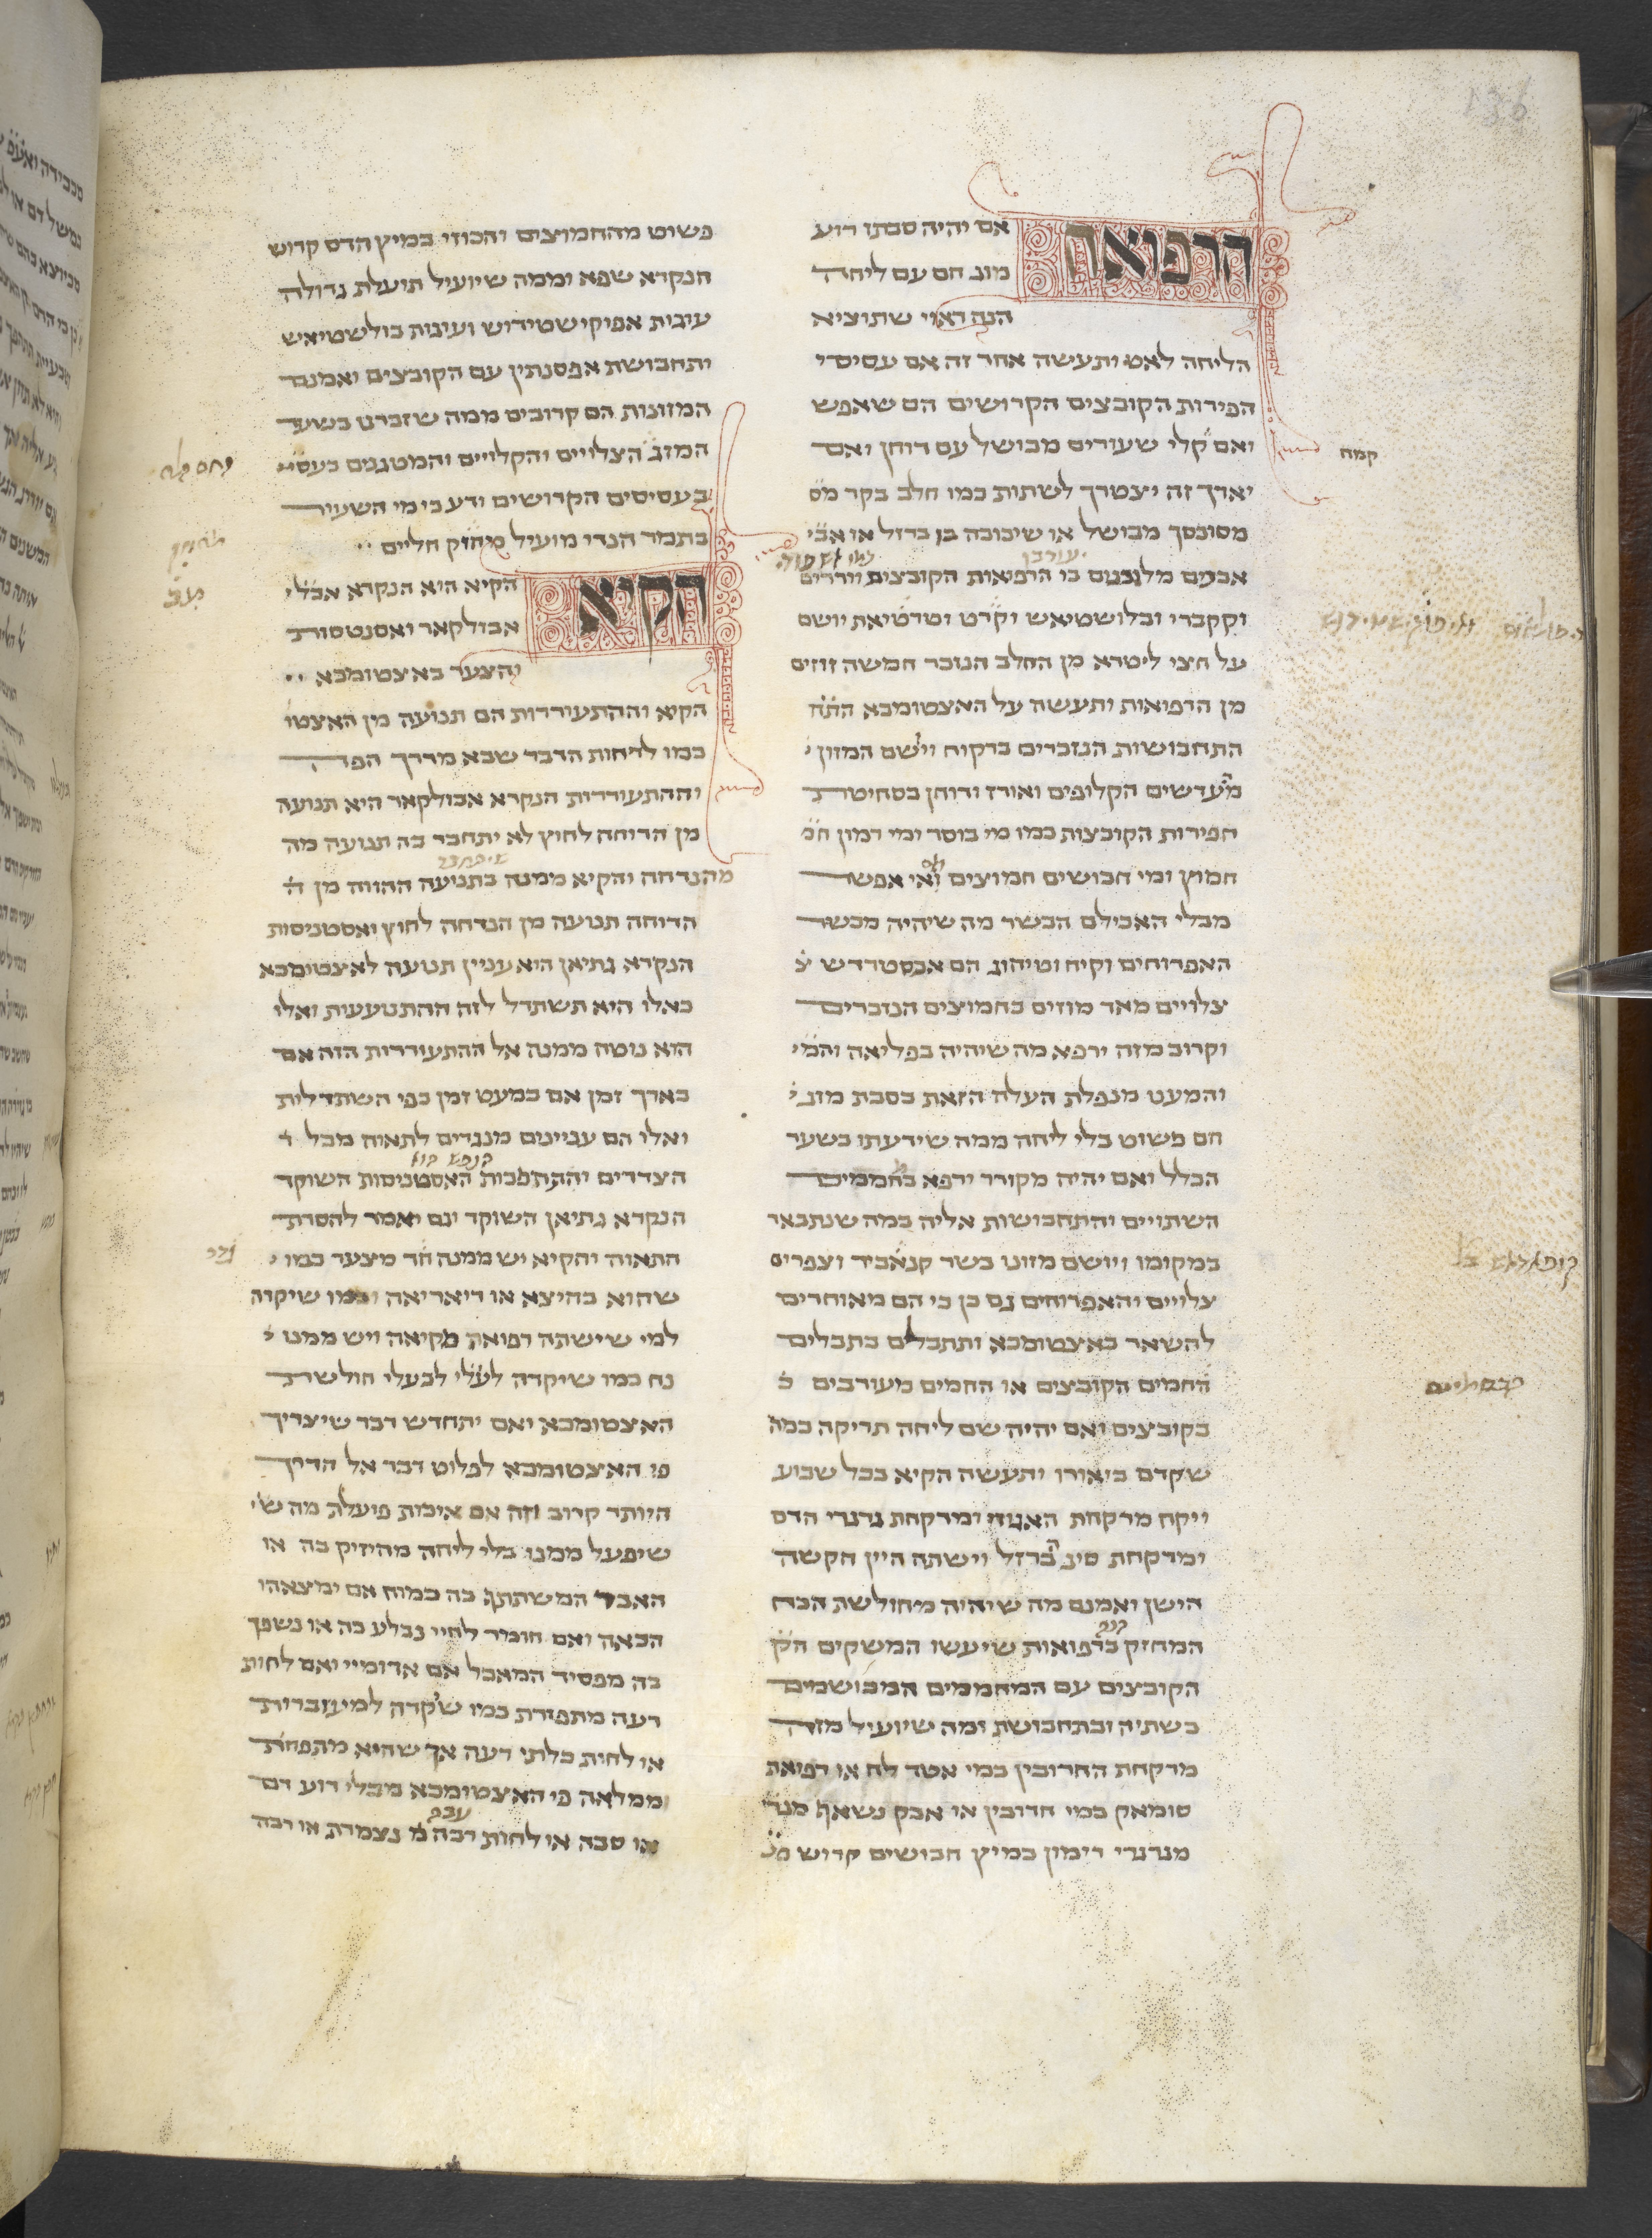 136
הרפואה אם יהיה סבתו רוע
מזג חם עם ליחה
הנה ראוי שתוציא
הליחה לאט ותעשה אחר זה אם עסיסי
הפירות הקובצים הקרושים הם שאפש
ואם קלי שעורים מבושל עם דוחן ואם
יארך זה יצטרך לשתות כמו חלב בקר
מסונסך מבושל או שיכובה בן ברזל או
אבנים מלובנים בו הרפואות הקובצים
וקקברי ובלושטיאש וקרט וטרטיאת יושם
על חצי ליטרא מן החלב הנזכר חמשה זוזים
מן הרפואות ותעשה על האצטומכא
התחבושות הנזכרים ברקוח ויושם המזון
מעדשים הקלופים ואורז ודוחן בסחיטת
הפירות הקובצות כמו מי בוסר ומי רמון
חמוץ ומי חבושים חמוצים ואי אפשר
מבלי האכילם הבשר מה שיהיה מבשר
האפרוחים וקיח וטיהוג הם אבסטרדש
צלויים מאד מוזים בחמוצים הנזכרים
וקרוב מזה ירפא מה שיהיה בפליאה
והמעט מנפלת העלה הזאת בסבת מזג
חם פשוט בלי ליחה ממה שידעתו בשער
הכלל ואם יהיה מקורר ירפא בחממים
השתויים והתחבושות אליה במה שנתבאר
במקומו ויושם מזונו בשר קנאביר וצפרים
צלויים והאפרוחים גם כן כי הם מאוחרים
להשאר באצטומכא ותתבלם בתבלים
החמים הקובצים או החמים מעורבים
בקובצים ואם יהיה שם ליחה תריקה במה
שקדם ביאורו ותעשה הקיא בכל שבוע
ויקח מרקחת האגוז ומרקחת גרגרי הדס
ומרקחת סיג ברזל וישתה היין הקשה
הישן ואמנם מה שיהיה מחולשת הכח
המחזק ברפואות שיעשו המשקים
הקובצים עם המחממים המבושמים
בשתיה ובתחבושת ומה שיועיל מזה
מרקחת החרובין במי אטד לח או רפואת
סומאק במי חרובין או אבק נשאף מגר
מגרגרי רימון במיץ חבושים קרוש
פשוט מהחמוצים והכוזי במיץ הדס קרוש
הנקרא שפא וממה שיועיל תועלת גדולה
עוגות אפוקישטידוש ועוגות בולשטיאש
ותחבושת אפסנתין עם הקובצים ואמנם
המזונות הם קרובים ממה שזכרנו בשער
המזג הצלויים והקלויים והמטגנים
בעסיסים הקרושים ודע כי מי השעיר
בתמר הנדי מועיל מיחזק חליים
הקיא הקיא הוא הנקרא
אבולקאר ואסנטסות
והצער באצטומכא
הקיא וההתעוררות הם תנועה מן האצטו
כמו לדחות הדבר שבא מדרך הפה
וההתעוררות הנקרא אבולקאר היא תנועה
מן הדיחה לחוץ לא יתחבר בה תנועה מה
מהנדחה והקיא ממנה בתנועה ההווה מן
הדוחה תנועה מן הנדחה לחוץ ואסטניסות
הנקרא גתיאן הוא עניין תנועה לאצטומכא
כאלו היא תשתדל לזה ההתנועעות ואלי
הוא נוטה ממנה אל ההתעוררות הזה אם
באורך זמן אם במעט זמן כפי השתדלות
ואלו הם עניינים מנגדים לתאוה מכל
הצדדים וההתהפכות האסטניסות השוקד
הנקרא גתיאן השוקד וגם יאמר להסרת
התאוה והקיא יש ממנה חד מצער כמו
שהוא בהיצא או דיאריאה וכמו שיקרה
למי שישתה רפואה מקיאה ויש ממנו
נח כמו שיקרה לבעלי חולשת
האצטומכא ואם יתחדש דבר שיצריך
פי האצטומכא לפלוט דבר אל הדרך
היותר קרוב וזה אם איכות פועלת מה
שיפעל ממנו בלי ליחה מהיזיק בה או
האבר המשתתף בה כמוח אם ימצאהו
הכאה ואם חומר לחיי נבלע בה או נשפך
בה מפסיד המאכל אם אדומיי ואם לחות
רעה מתפזרת כמו שקרה למיעוברות
או לחות בלתי רעה אך שהיא מתפחת
ממלאה פי האצטומכא מבלי רוע דם
או סבה או לחות רבה נצמדת או רבה
קמח